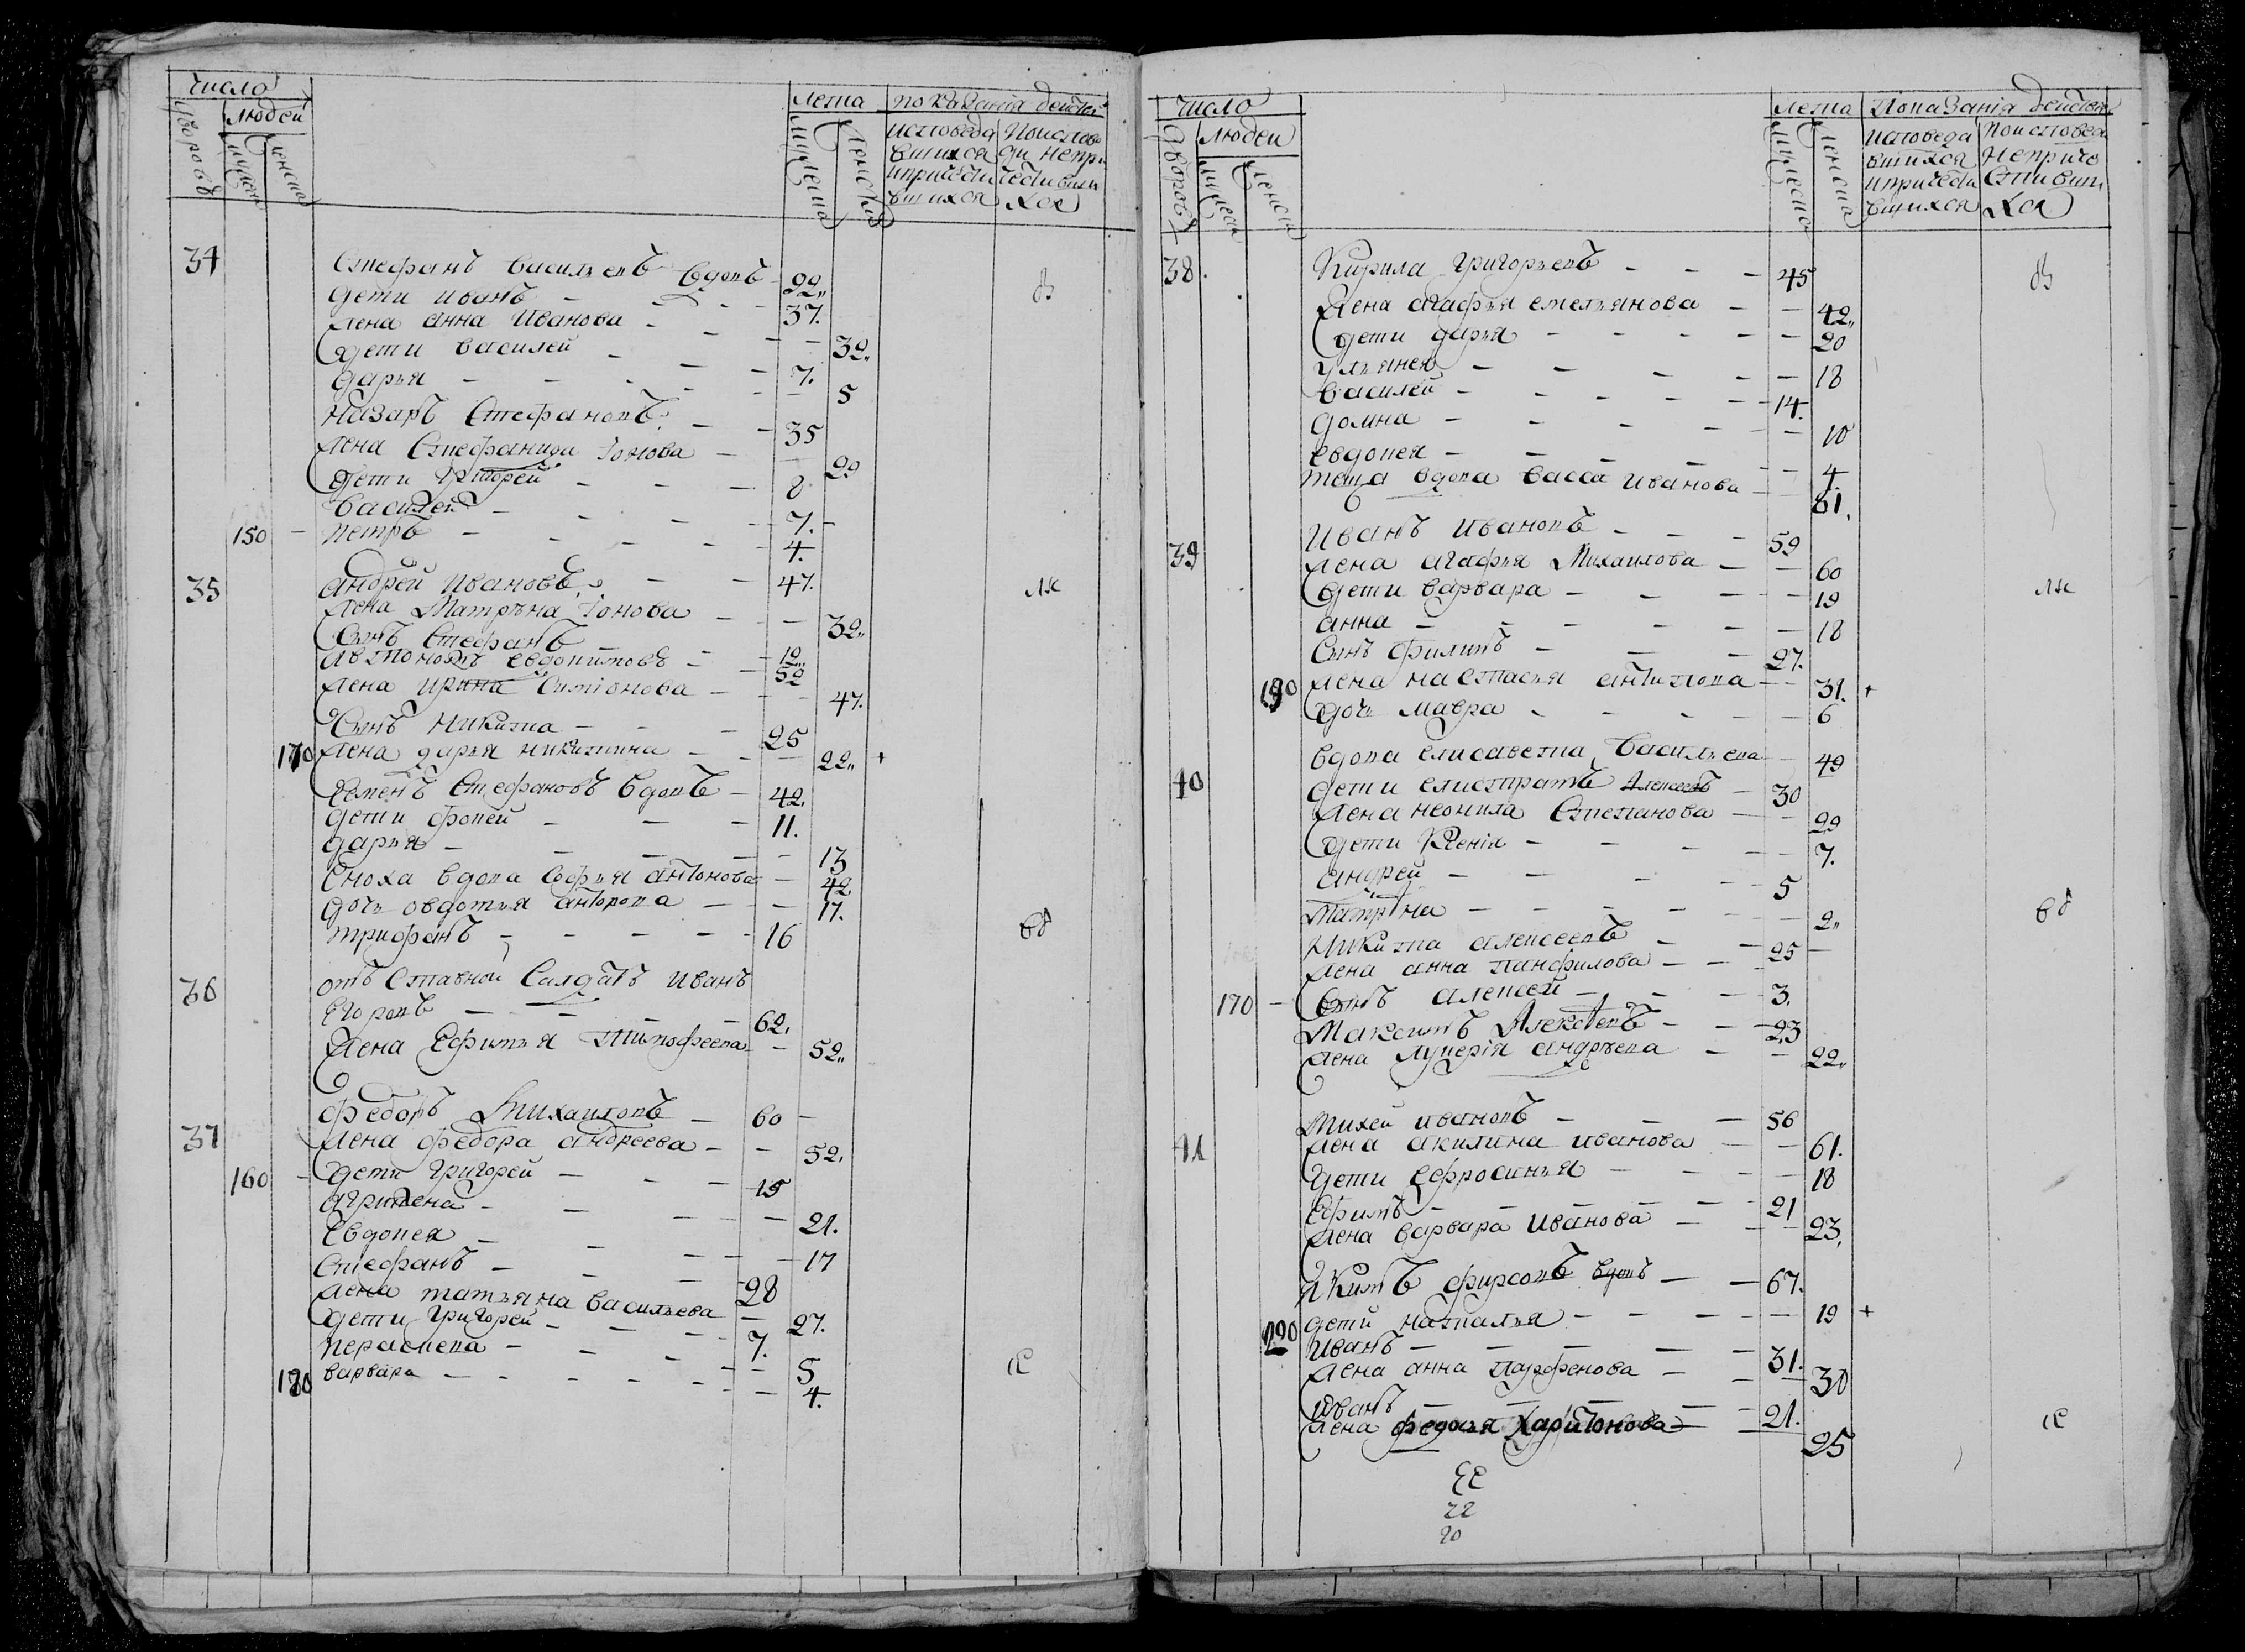 число
людей
дворовъ
мужеска
женска
лета
мужеска
женска
показания действ
исповеда
вшихся
и причести
вшихся
По испове
ди непри
чести вши
хся
34 Стефанъ Васильевъ вдовъ 92
дети иванъ 37.
жена анна иванова 32
дети василей 7.
дарья 5
назаръ Стефановъ 35
жена Стефанида Ионова 29
дети григорей 8
василей 7.
150 петръ 4.
35 андрей ивановъ 47.
жена Матрена Ионова 32
сынъ Стефанъ 12
автономъ евдокимовъ 52
жена ирина Симионова 47.
сынъ никита 25
170 жена дарья никитина 22 +
Семенъ Стефановъ вдовъ 42.
дети фокей 11.
дарья 13
Сноха вдова софья антонова 42
дочь овдотья 17.
трифанъ 16
36 отъ Ставной Салдатъ иванъ
Егоровъ 62.
жена Ефимья Тимофеева 52
37 федоръ Михаиловъ 60
жена федора андреева 52.
160 дети григорей 15
агрипена 21.
Евдокея 17
Стефанъ 28
жена татьяна васильева 27.
дети григорей 7.
параскева 5
180 варвара 4.
в
ж
вд
се
число
людей
дворовъ
мужеска
женска
лета
мужеска
женска
Показания действ
исповеда
вшихся
и причести
вшихся
По исповеди
Неприче
Стивши
хся
38. Кирила григорьевъ 45
жена агафья емельянова 42
дети дарья 20
ульянея 18
василей 14.
домна 10
евдокея 4.
теща вдова васса иванова 81.
39 иванъ ивановъ 59
жена агафья Михаилова 60
дети варвара 19
анна 18
Сынъ филипъ 27.
190 жена настасья антипова 31. +
дочь мавра 6
40 вдова елисавета васильева 49
дети елистратъ Алексеевъ 30
жена неонила Степанова 29
дети Ксения 7.
андрей 5
Матрона 2
Никита алексеевъ 25
жена анна панфилова
170 Сынъ алексей 3.
Максимъ Алексеевъ 23
жена лукерия андреева 22
41 Михей ивановъ 56
жена акилина иванова 61.
дети Ефросинья 18
Ефимъ 21
жена варвара иванова 23.
якимъ фирсовъ вдовъ 67.
дети наталья 19 +
200 иванъ 31.
жена анна парфенова 30
иванъ 21.
жена федосья Харитонова 25
в
ж
вд
се
22
20